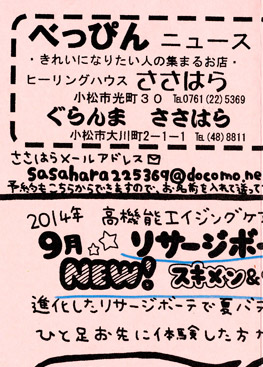 べっぴん ニュース
・きれいになりたい人の集まるお店・
ヒーリングハウス ささはら
小松市光町30 TEL0761(22)5369
ぐらんま ささはら
小松市大川町2-1-1 TEL(48)8811
ささはらメールアドレス
sasahara225369@docomo.ne
予約もこちらからできますので、お名前を入れて送って
2014年 高機能エイジングケア
9月 リサージボー
NEW! スキメン&
進化したリサージボーテで夏バテ
ひと足お先に体験した方か